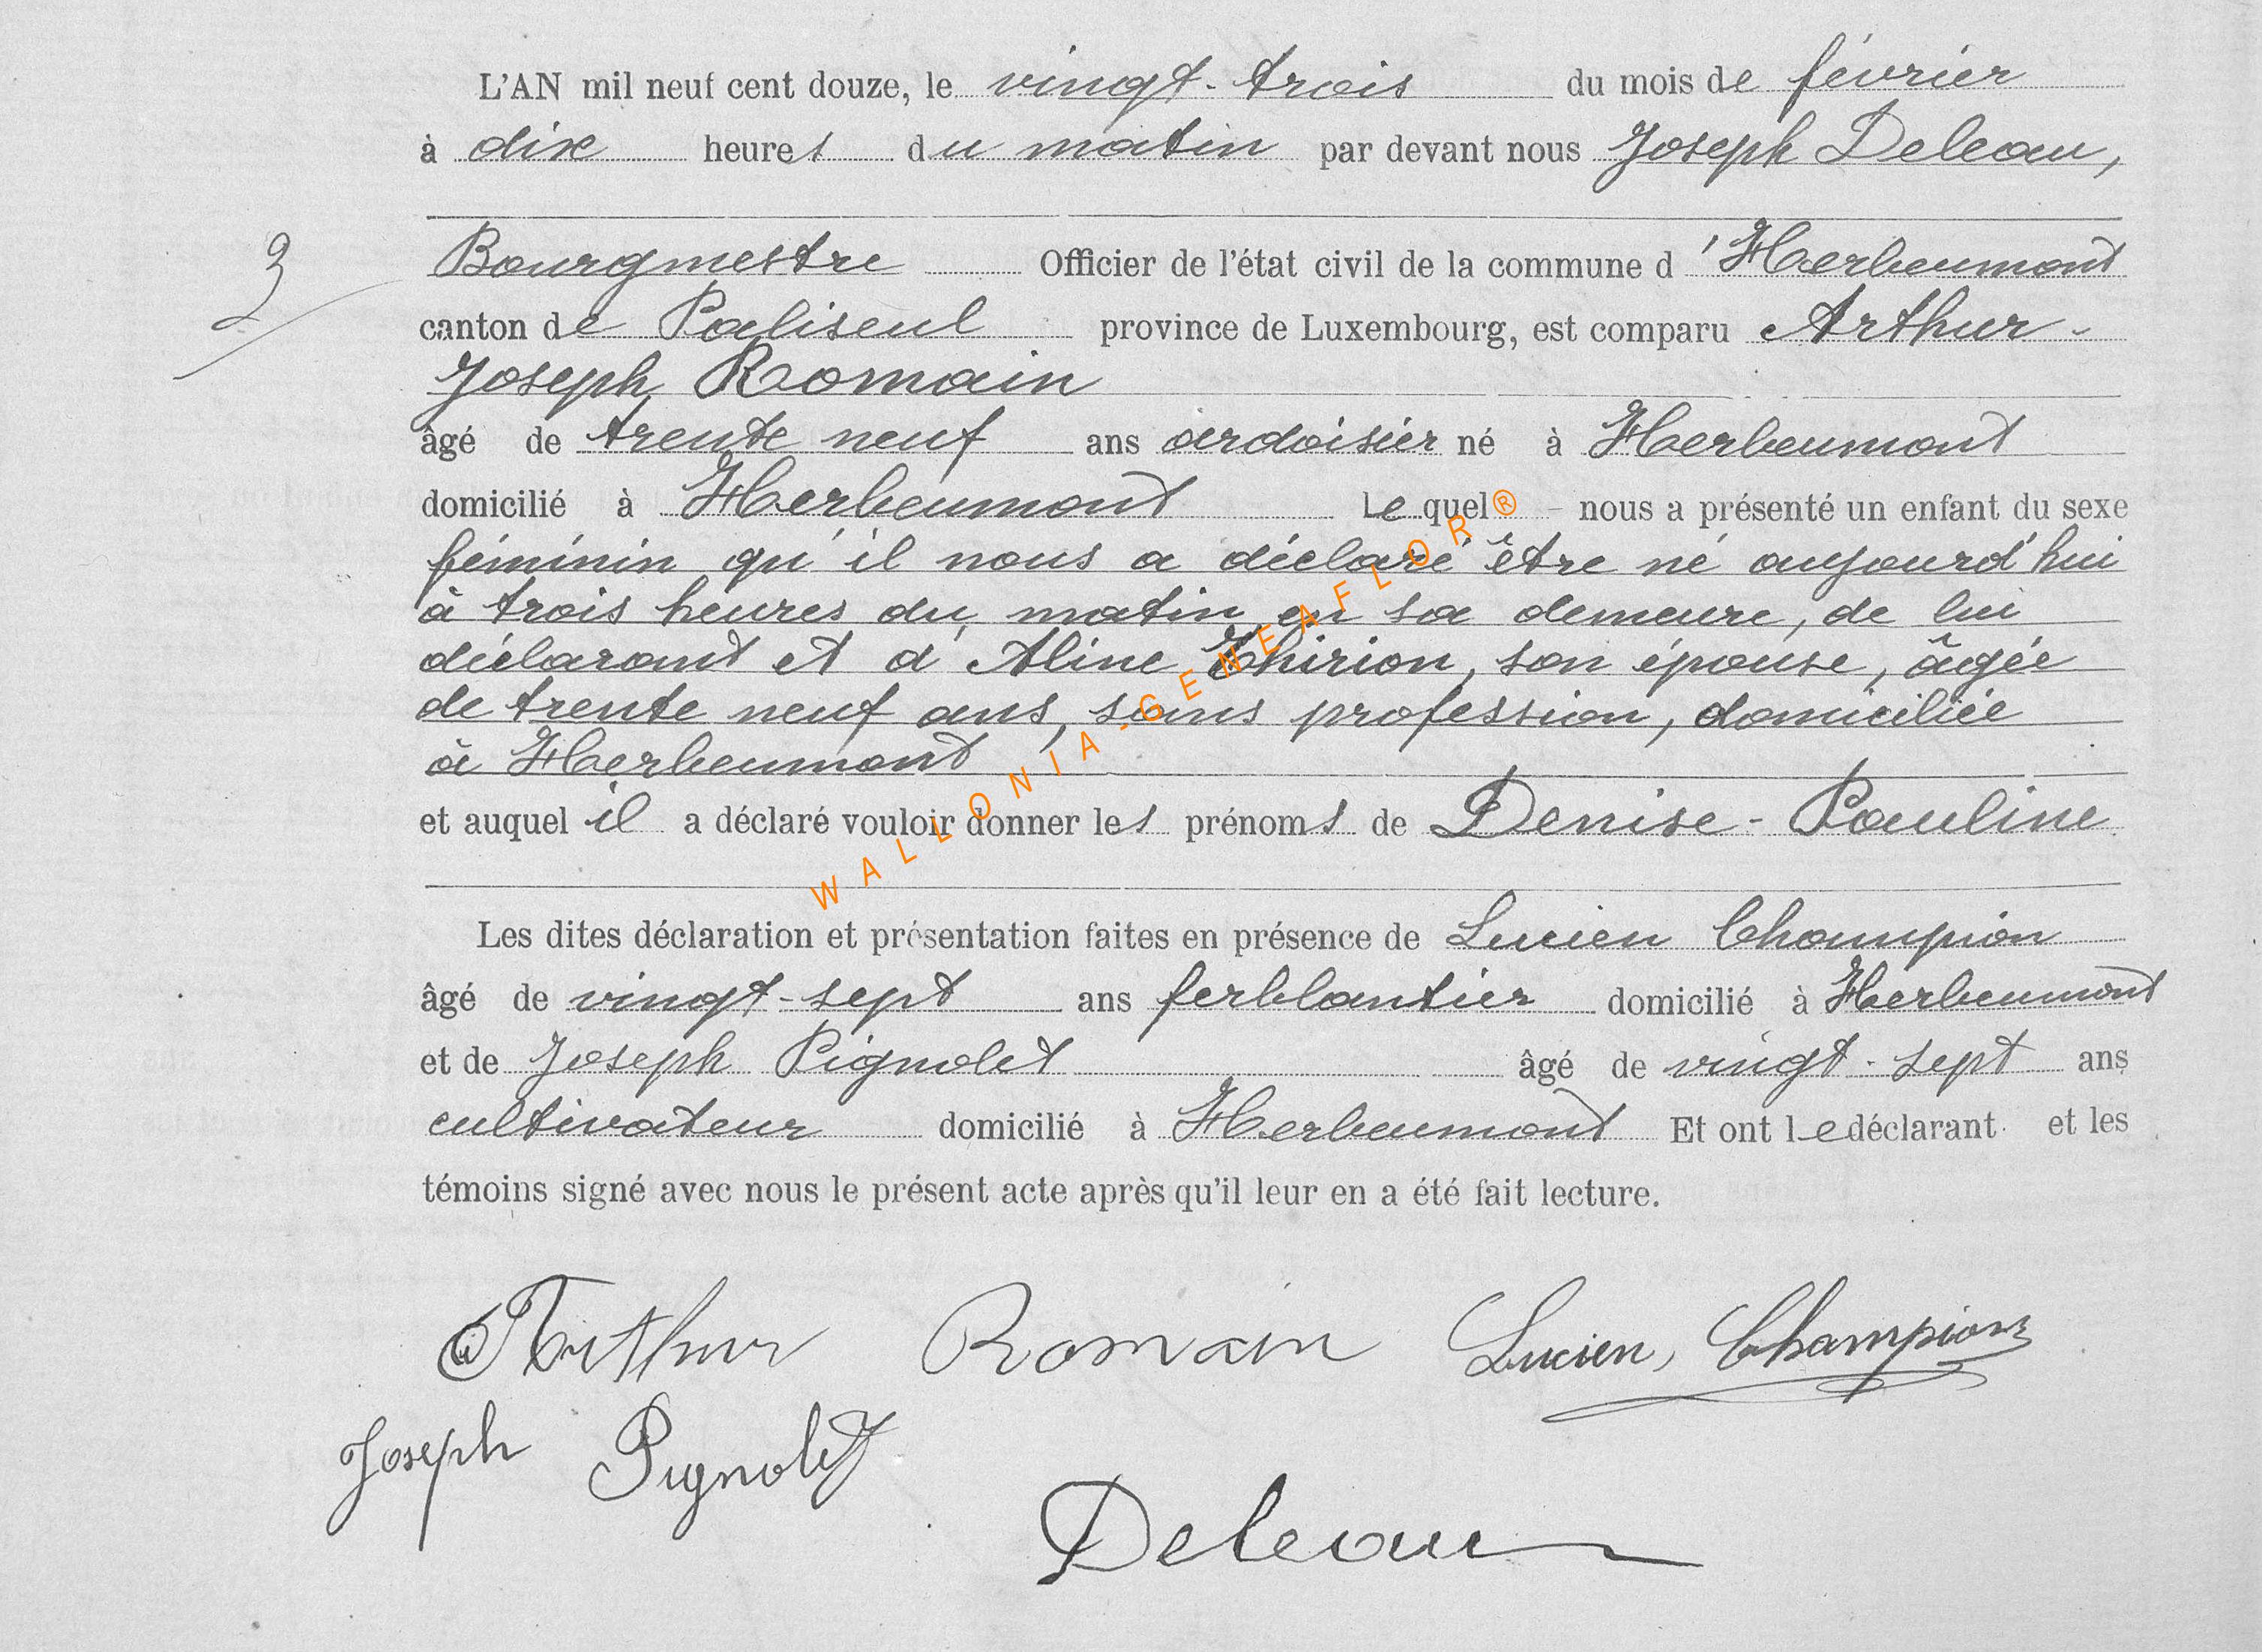 L'AN mil neuf cent douze, le vingt-trois du mois de février
à dix heures du matin par devant nous Joseph Deleau,
3
Bourgmestre Officier de l'état civil de la commune d'Herbeumont
canton de Paliseul province de Luxembourg, est comparu Arthur-
Joseph Romain
âgé de trente neuf ans ardoisier né à Herbeumont
domicilié à Herbeumont Le quel nous a présenté un enfant du sexe
féminin qu'il nous a déclaré être né aujourd'hui
à trois heures du matin en sa demeure, de lui
déclarant et d'Aline Thirion, son épouse, âgée
de trente neuf ans, sans profession, domiciliée
à Herbeumont
et auquel il a déclaré vouloir donner les prénoms de Denise-Pauline
WALLONIA-GENEAFLOR®
Les dites déclaration et présentation faites en présence de Lucien Champion
âgé de vingt-sept ans ferblantier domicilié à Herbeumont
et de Joseph Pignolet âgé de vingt-sept ans
cultivateur domicilié à Herbeumont Et ont le déclarant et les
témoins signé avec nous le présent acte après qu'il leur en a été fait lecture.
Arthur Romain Lucien, Champion
Joseph Pignolet
Deleau